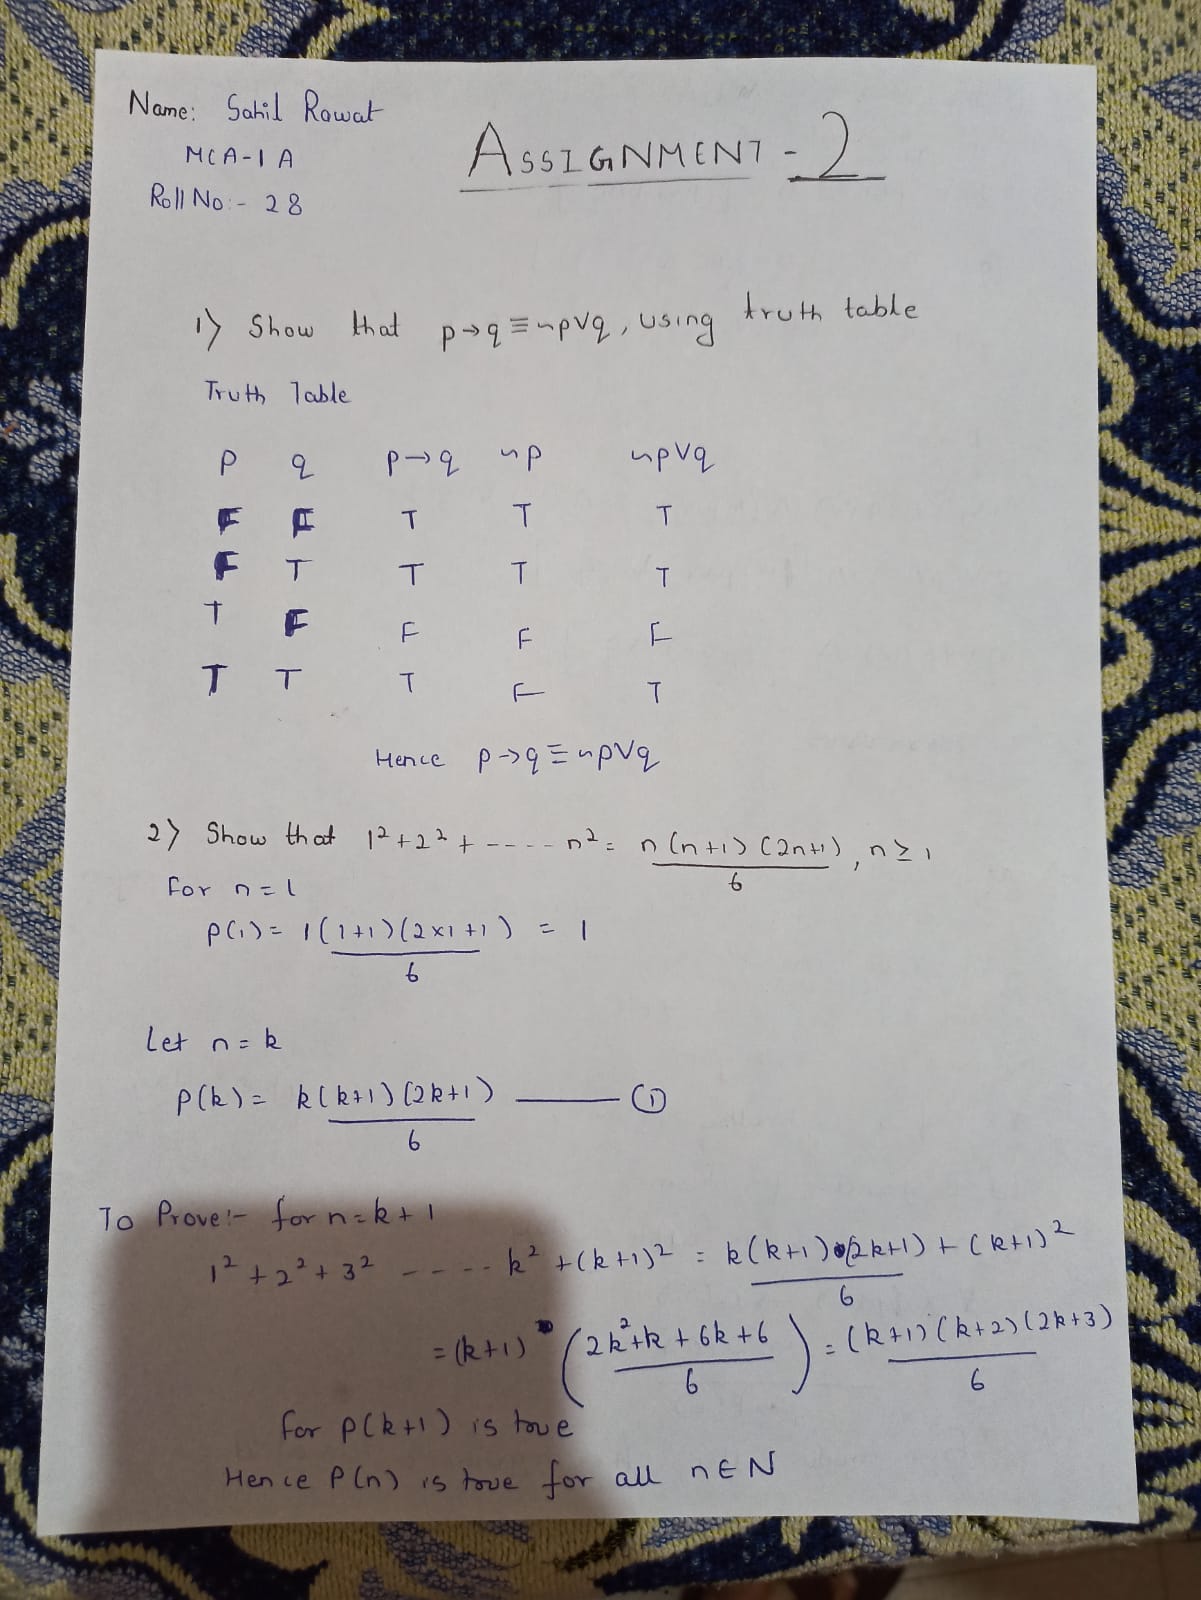 Name: Sahil Rawat
MCA-I A
Roll No:- 28
ASSIGNMENT - 2
1) Show that p→q ≡ ~p∨q, using truth table
Truth Table
p q p→q ~p ~p∨q
F F T T T
F T T T T
T F F F F
T T T F T
Hence p→q ≡ ~p∨q
2) Show that 1² + 2² + ----- n² = n(n+1)(2n+1)/6, n ≥ 1
For n = 1
P(1) = 1(1+1)(2×1+1)/6 = 1
Let n = k
P(k) = k(k+1)(2k+1)/6 —— ①
To Prove:- for n = k+1
1² + 2² + 3² ----- k² + (k+1)² = k(k+1)(2k+1)/6 + (k+1)²
= (k+1) (2k²+k+6k+6/6) = (k+1)(k+2)(2k+3)/6
for P(k+1) is true
Hence P(n) is true for all n ∈ N